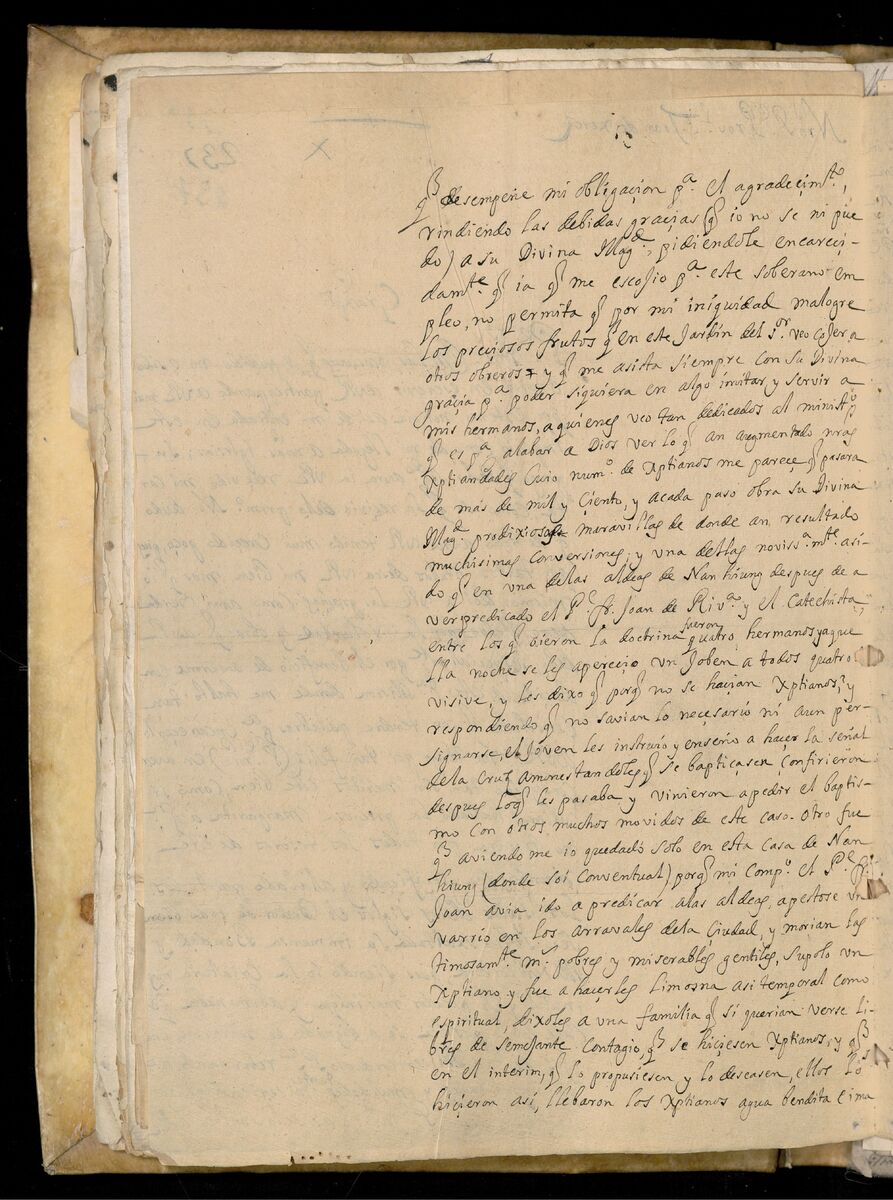 qᵉ desempeñe mi obligaçion pᵃ. el agradeçimᵗᵒ,
rindiendo las debidas graçias (qᵉ io no se ni pue
do) a su Divina Magᵈ., pidiendole encareçi-
damᵗᵉ. qᵉ ia qᵉ me escojio pᵃ. este soberano em
pleo, no permita qᵉ por mi iniquidad malogre
los preçiosos frutos qᵉ en este Jardin del Sᵒʳ. veo cojer a
otros obreros, y qᵉ me asista siempre con su Divina
graçia pᵃ. poder siquiera en algo imitar, y servir a
mis hermanos, a quienes veo tan dedicados al ministᵒ,
qᵉ es pᵃ. alabar a Dios ver lo qᵉ an augmentado nras
Xptiandades Cuio numᵒ. de Xptianos me pareçe qᵉ pasara
de más de mil y Çiento, y acada paso obra su Divina
Magᵈ. prodixiosas maravillas de donde an resultado
muchisimas conversiones, y una dellas novissᵃ.mᵗᵉ. a si-
do qᵉ en una delas aldeas de Nanhiung despues de a
ver predicado el Pᵉ. fr. Joan de Rivᵃ. y el Catechista,
entre los qᵉ oieron la doctrina fueron quatro hermanos, y aque
lla noche se les apereçio un Joben a todos quatro
visive, y les dixo qᵉ porqᵉ no se haçian Xptianos, y
respondiendo qᵉ no savian lo neçesario ni aun per-
signarse, el Joven les instruio y enseño a haçer la señal
dela Cruz amonestandoles qᵉ se baptiçasen, Confirieron
despues loqᵉ les pasaba y vinieron apedir el baptis-
mo con otros muchos movidos de este caso. Otro fue
qᵉ aviendo me io quedado solo en esta casa de Nan
hiung (donde soi Conventual) porqᵉ mi Compᵒ. el Pᵉ. fr.
Joan avia ido a predicar alas aldeas, apestose un
varrio en los arravales dela Ciudad, y morian las
timosamᵗᵉ. mˢ. pobres y miserables gentiles, supolo un
Xptiano y fue a haçerles limosna asi temporal como
espiritual, dixoles a una familia qᵉ si querian verse li-
bres de semejante Contagio, qᵉ se hiçiesen Xptianos, y qᵉ
en el interim, qᵉ lo propusiesen y lo deseasen, ellos lo
hiçieron asi, llebaron los Xptianos agua bendita e ima